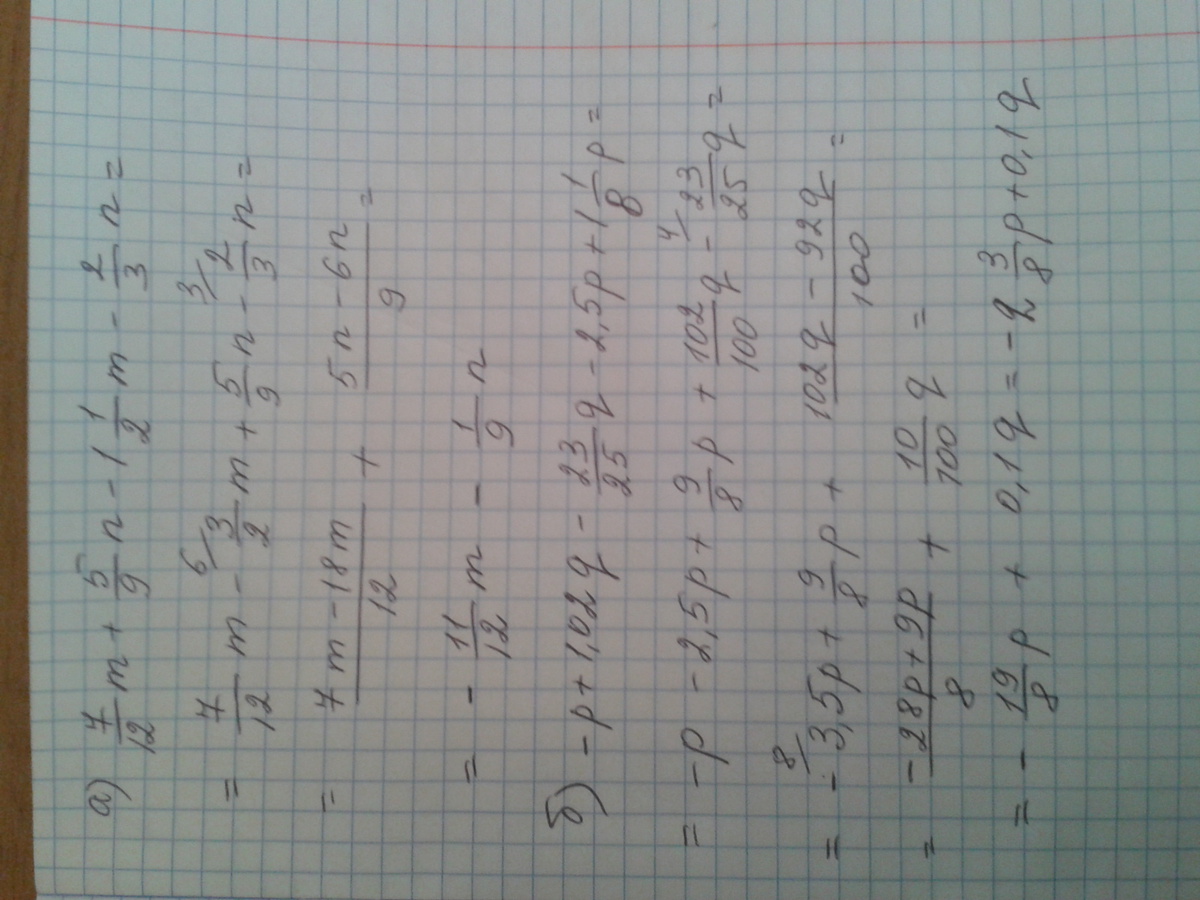 а) 7/12 m + 5/9 n - 1 1/2 m - 2/3 n =
= 7/12 m - 6/ 3/2 m + 5/9 n - 3/ 2/3 n =
= (7m - 18m)/12 + (5n - 6n)/9 =
= - 11/12 m - 1/9 n
б) - p + 1,02 q - 23/25 q - 2,5p + 1 1/8 p =
= - p - 2,5p + 9/8 p + 102/100 q - 4/ 23/25 q =
= 8/ - 3,5p + 9/8 p + (102q - 92q)/100 =
= (-28p + 9p)/8 + 10/100 q =
= - 19/8 p + 0,1q = - 2 3/8 p + 0,1q